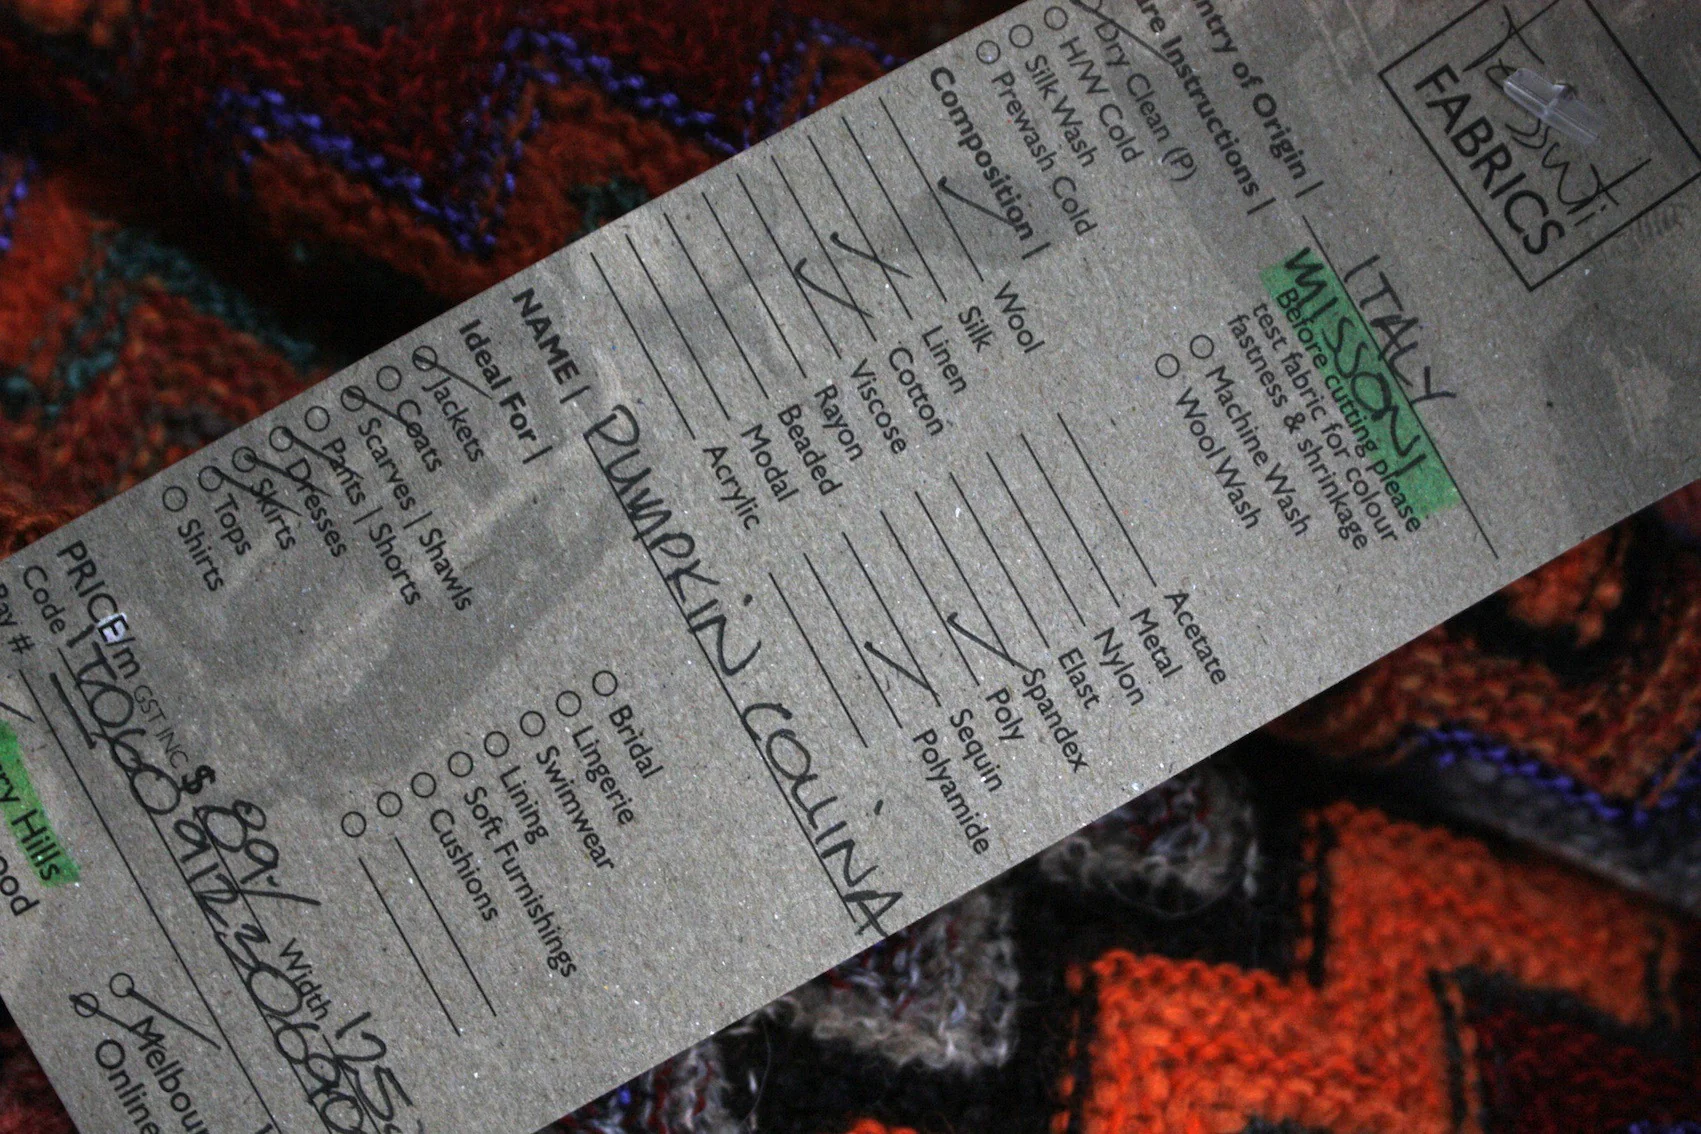 Tessuti
FABRICS
ntry of Origin | ITALY
MISSONI
re Instructions | Before cutting please
test fabric for colour
fastness & shrinkage
Dry Clean (P)
H/W Cold Machine Wash
Silk Wash Wool Wash
Prewash Cold
Composition |
Wool Acetate
Silk Metal
Linen Nylon
Cotton Elast
Viscose Spandex
Rayon Poly
Beaded Sequin
Modal Polyamide
Acrylic
NAME | PUMPKIN COLLINA
Ideal For |
Jackets Bridal
Coats Lingerie
Scarves | Shawls Swimwear
Pants | Shorts Lining
Dresses Soft Furnishings
Skirts Cushions
Tops
Shirts
PRICE/m GST INC $ 89./ Width 125
Code
ay #
ry Hills Melbour
ood Online